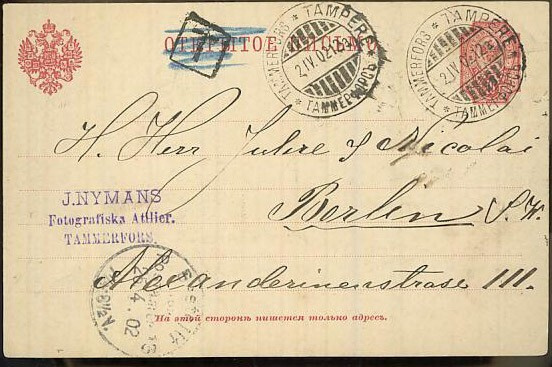 ОТКРЫТОЕ ПИСЬМО
T
TAMPERE
TAMMERFORS
2.IV.02
ТАММЕРФОРСЪ
TAMPERE
TAMMERFORS
2.IV.02
ТАММЕРФОРСЪ
H. Herr Juhre & Nicolai
Berlin S.W.
Alexanderinenstrase 111.
J.NYMANS
Fotografiska Atilier.
TAMMERFORS.
4.02
На этой сторонѣ пишется только адресъ.